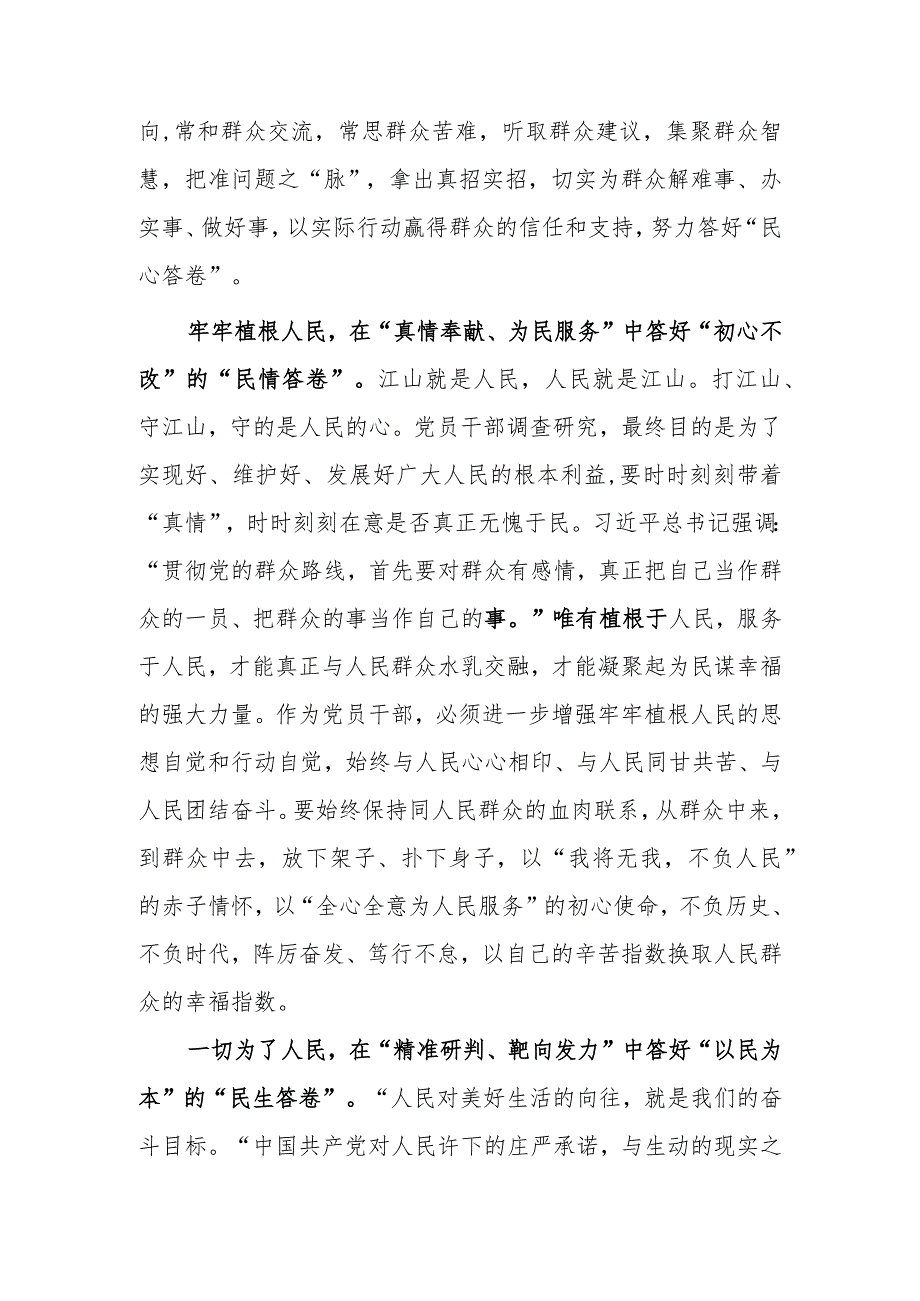 向,常和群众交流，常思群众苦难，听取群众建议，集聚群众智
慧，把准问题之“脉”，拿出真招实招，切实为群众解难事、办
实事、做好事，以实际行动赢得群众的信任和支持，努力答好“民
心答卷”。
牢牢植根人民，在“真情奉献、为民服务”中答好“初心不
改”的“民情答卷”。江山就是人民，人民就是江山。打江山、
守江山，守的是人民的心。党员干部调查研究，最终目的是为了
实现好、维护好、发展好广大人民的根本利益,要时时刻刻带着
“真情”，时时刻刻在意是否真正无愧于民。习近平总书记强调：
“贯彻党的群众路线，首先要对群众有感情，真正把自己当作群
众的一员、把群众的事当作自己的事。”唯有植根于人民，服务
于人民，才能真正与人民群众水乳交融，才能凝聚起为民谋幸福
的强大力量。作为党员干部，必须进一步增强牢牢植根人民的思
想自觉和行动自觉，始终与人民心心相印、与人民同甘共苦、与
人民团结奋斗。要始终保持同人民群众的血肉联系，从群众中来，
到群众中去，放下架子、扑下身子，以“我将无我，不负人民”
的赤子情怀，以“全心全意为人民服务”的初心使命，不负历史、
不负时代，阵厉奋发、笃行不怠，以自己的辛苦指数换取人民群
众的幸福指数。
一切为了人民，在“精准研判、靶向发力”中答好“以民为
本”的“民生答卷”。“人民对美好生活的向往，就是我们的奋
斗目标。“中国共产党对人民许下的庄严承诺，与生动的现实之